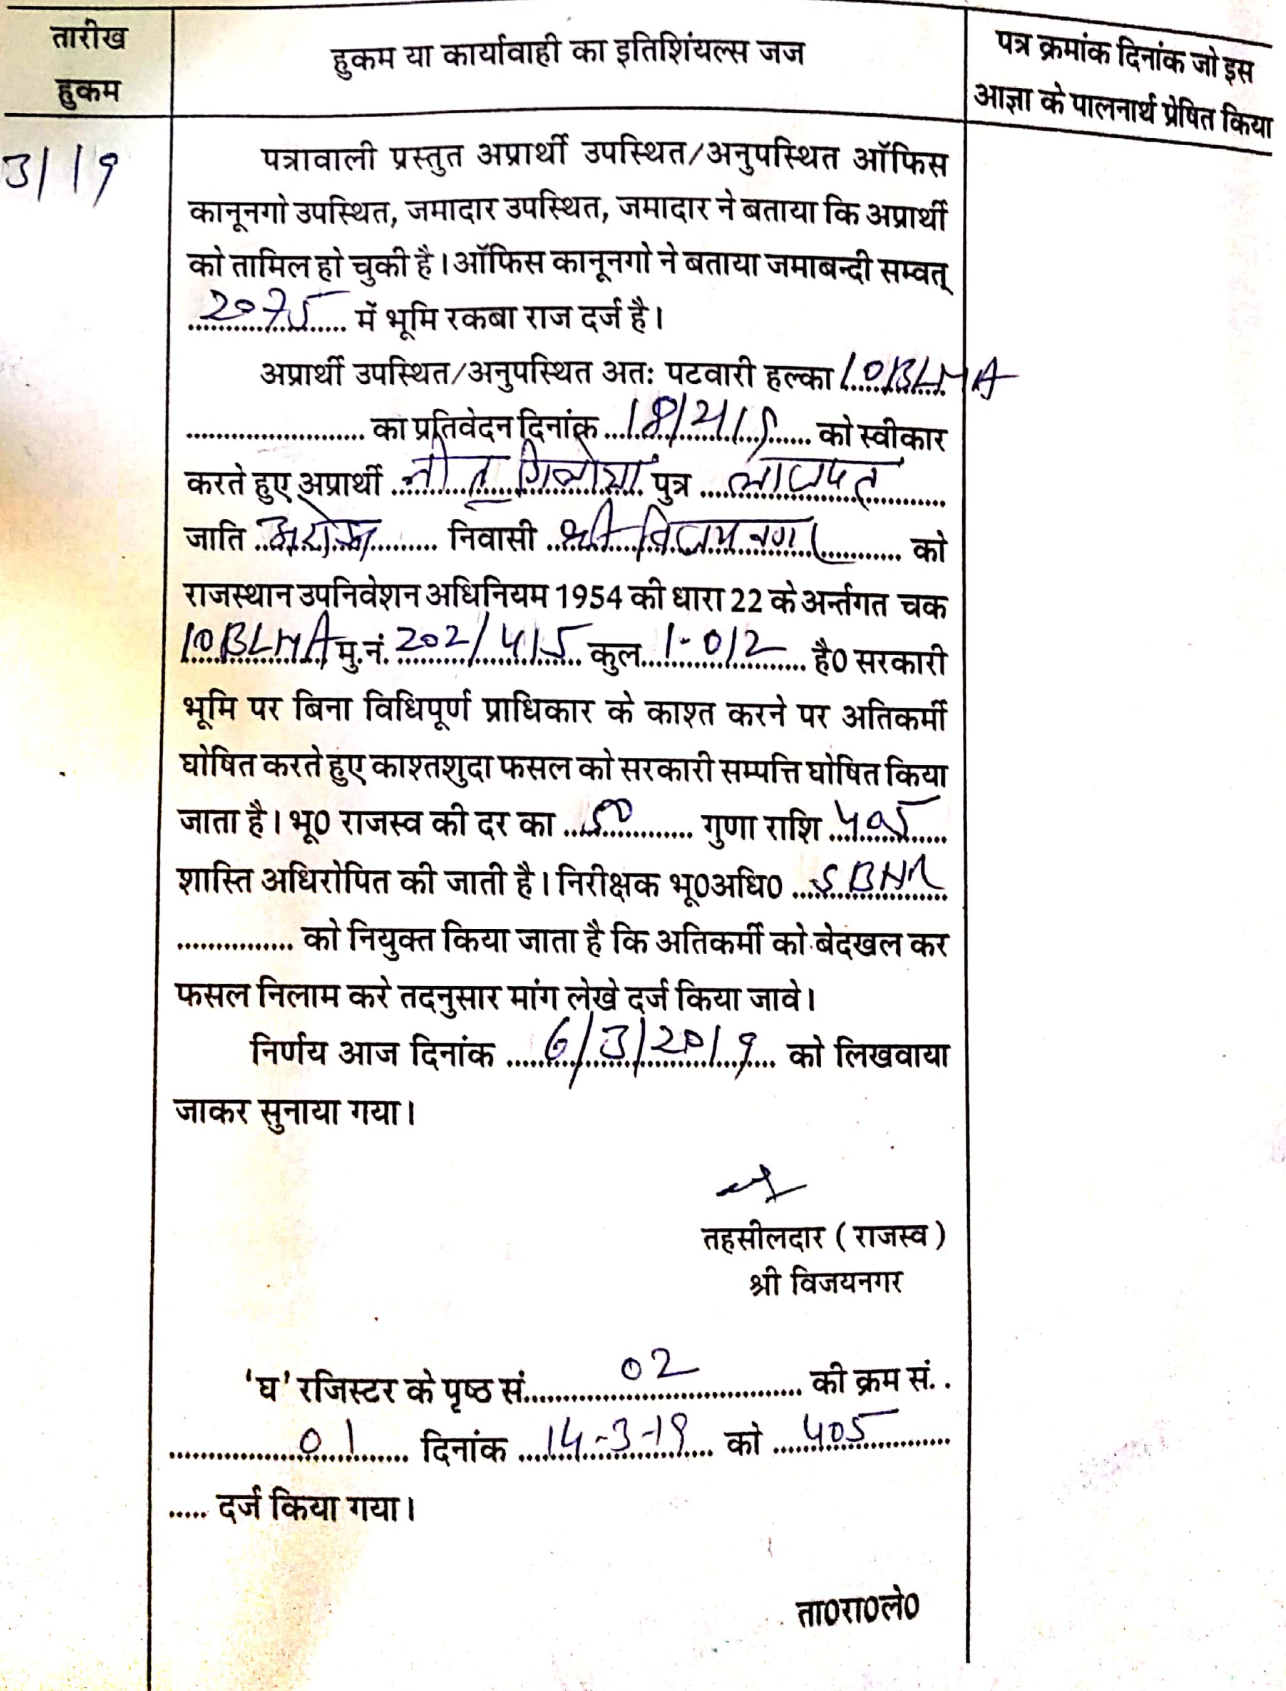 तारीख
हुकम
हुकम या कार्यावाही का इतिशिंयल्स जज
पत्र क्रमांक दिनांक जो इस
आज्ञा के पालनार्थ प्रेषित किया
3/19
पत्रावाली प्रस्तुत अप्रार्थी उपस्थित/अनुपस्थित ऑफिस
कानूनगो उपस्थित, जमादार उपस्थित, जमादार ने बताया कि अप्रार्थी
को तामिल हो चुकी है। ऑफिस कानूनगो ने बताया जमाबन्दी सम्वत्
2075 में भूमि रकबा राज दर्ज है।
अप्रार्थी उपस्थित/अनुपस्थित अतः पटवारी हल्का 10BLMA
का प्रतिवेदन दिनांक को स्वीकार
करते हुए अप्रार्थी पुत्र लाजपत
जाति अरोड़ा निवासी श्री विजयनगर को
राजस्थान उपनिवेशन अधिनियम 1954 की धारा 22 के अर्न्तगत चक
10BLMA मु.नं. 202/4/5 कुल 1-012 है0 सरकारी
भूमि पर बिना विधिपूर्ण प्राधिकार के काश्त करने पर अतिकर्मी
घोषित करते हुए काश्तशुदा फसल को सरकारी सम्पत्ति घोषित किया
जाता है। भू0 राजस्व की दर का 50 गुणा राशि 405
शास्ति अधिरोपित की जाती है। निरीक्षक भू0अधि0 SBNR
को नियुक्त किया जाता है कि अतिकर्मी को बेदखल कर
फसल निलाम करे तदनुसार मांग लेखे दर्ज किया जावे।
निर्णय आज दिनांक 6/3/2019 को लिखवाया
जाकर सुनाया गया।
तहसीलदार (राजस्व)
श्री विजयनगर
'घ' रजिस्टर के पृष्ठ सं. 02 की क्रम सं.
01 दिनांक 14-3-19 को 405
दर्ज किया गया।
ता0रा0ले0